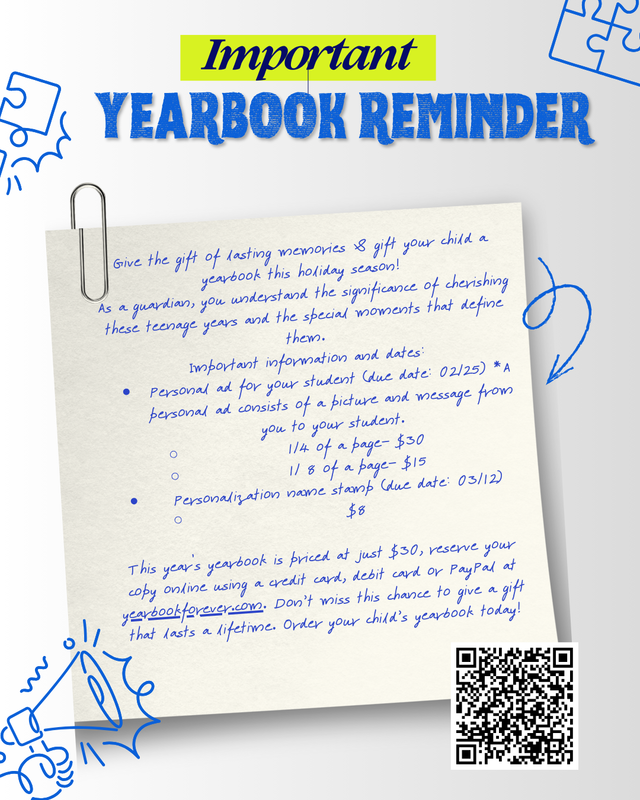 Important
YEARBOOK REMINDER
Give the gift of lasting memories & gift your child a
yearbook this holiday season!
As a guardian, you understand the significance of cherishing
these teenage years and the special moments that define
them.
Important information and dates:
• Personal ad for your student (due date: 02/25) *A
personal ad consists of a picture and message from
you to your student.
○ 1/4 of a page- $30
○ 1/ 8 of a page- $15
• Personalization name stamp (due date: 03/12)
○ $8
This year's yearbook is priced at just $30, reserve your
copy online using a credit card, debit card or PayPal at
yearbookforever.com. Don't miss this chance to give a gift
that lasts a lifetime. Order your child's yearbook today!